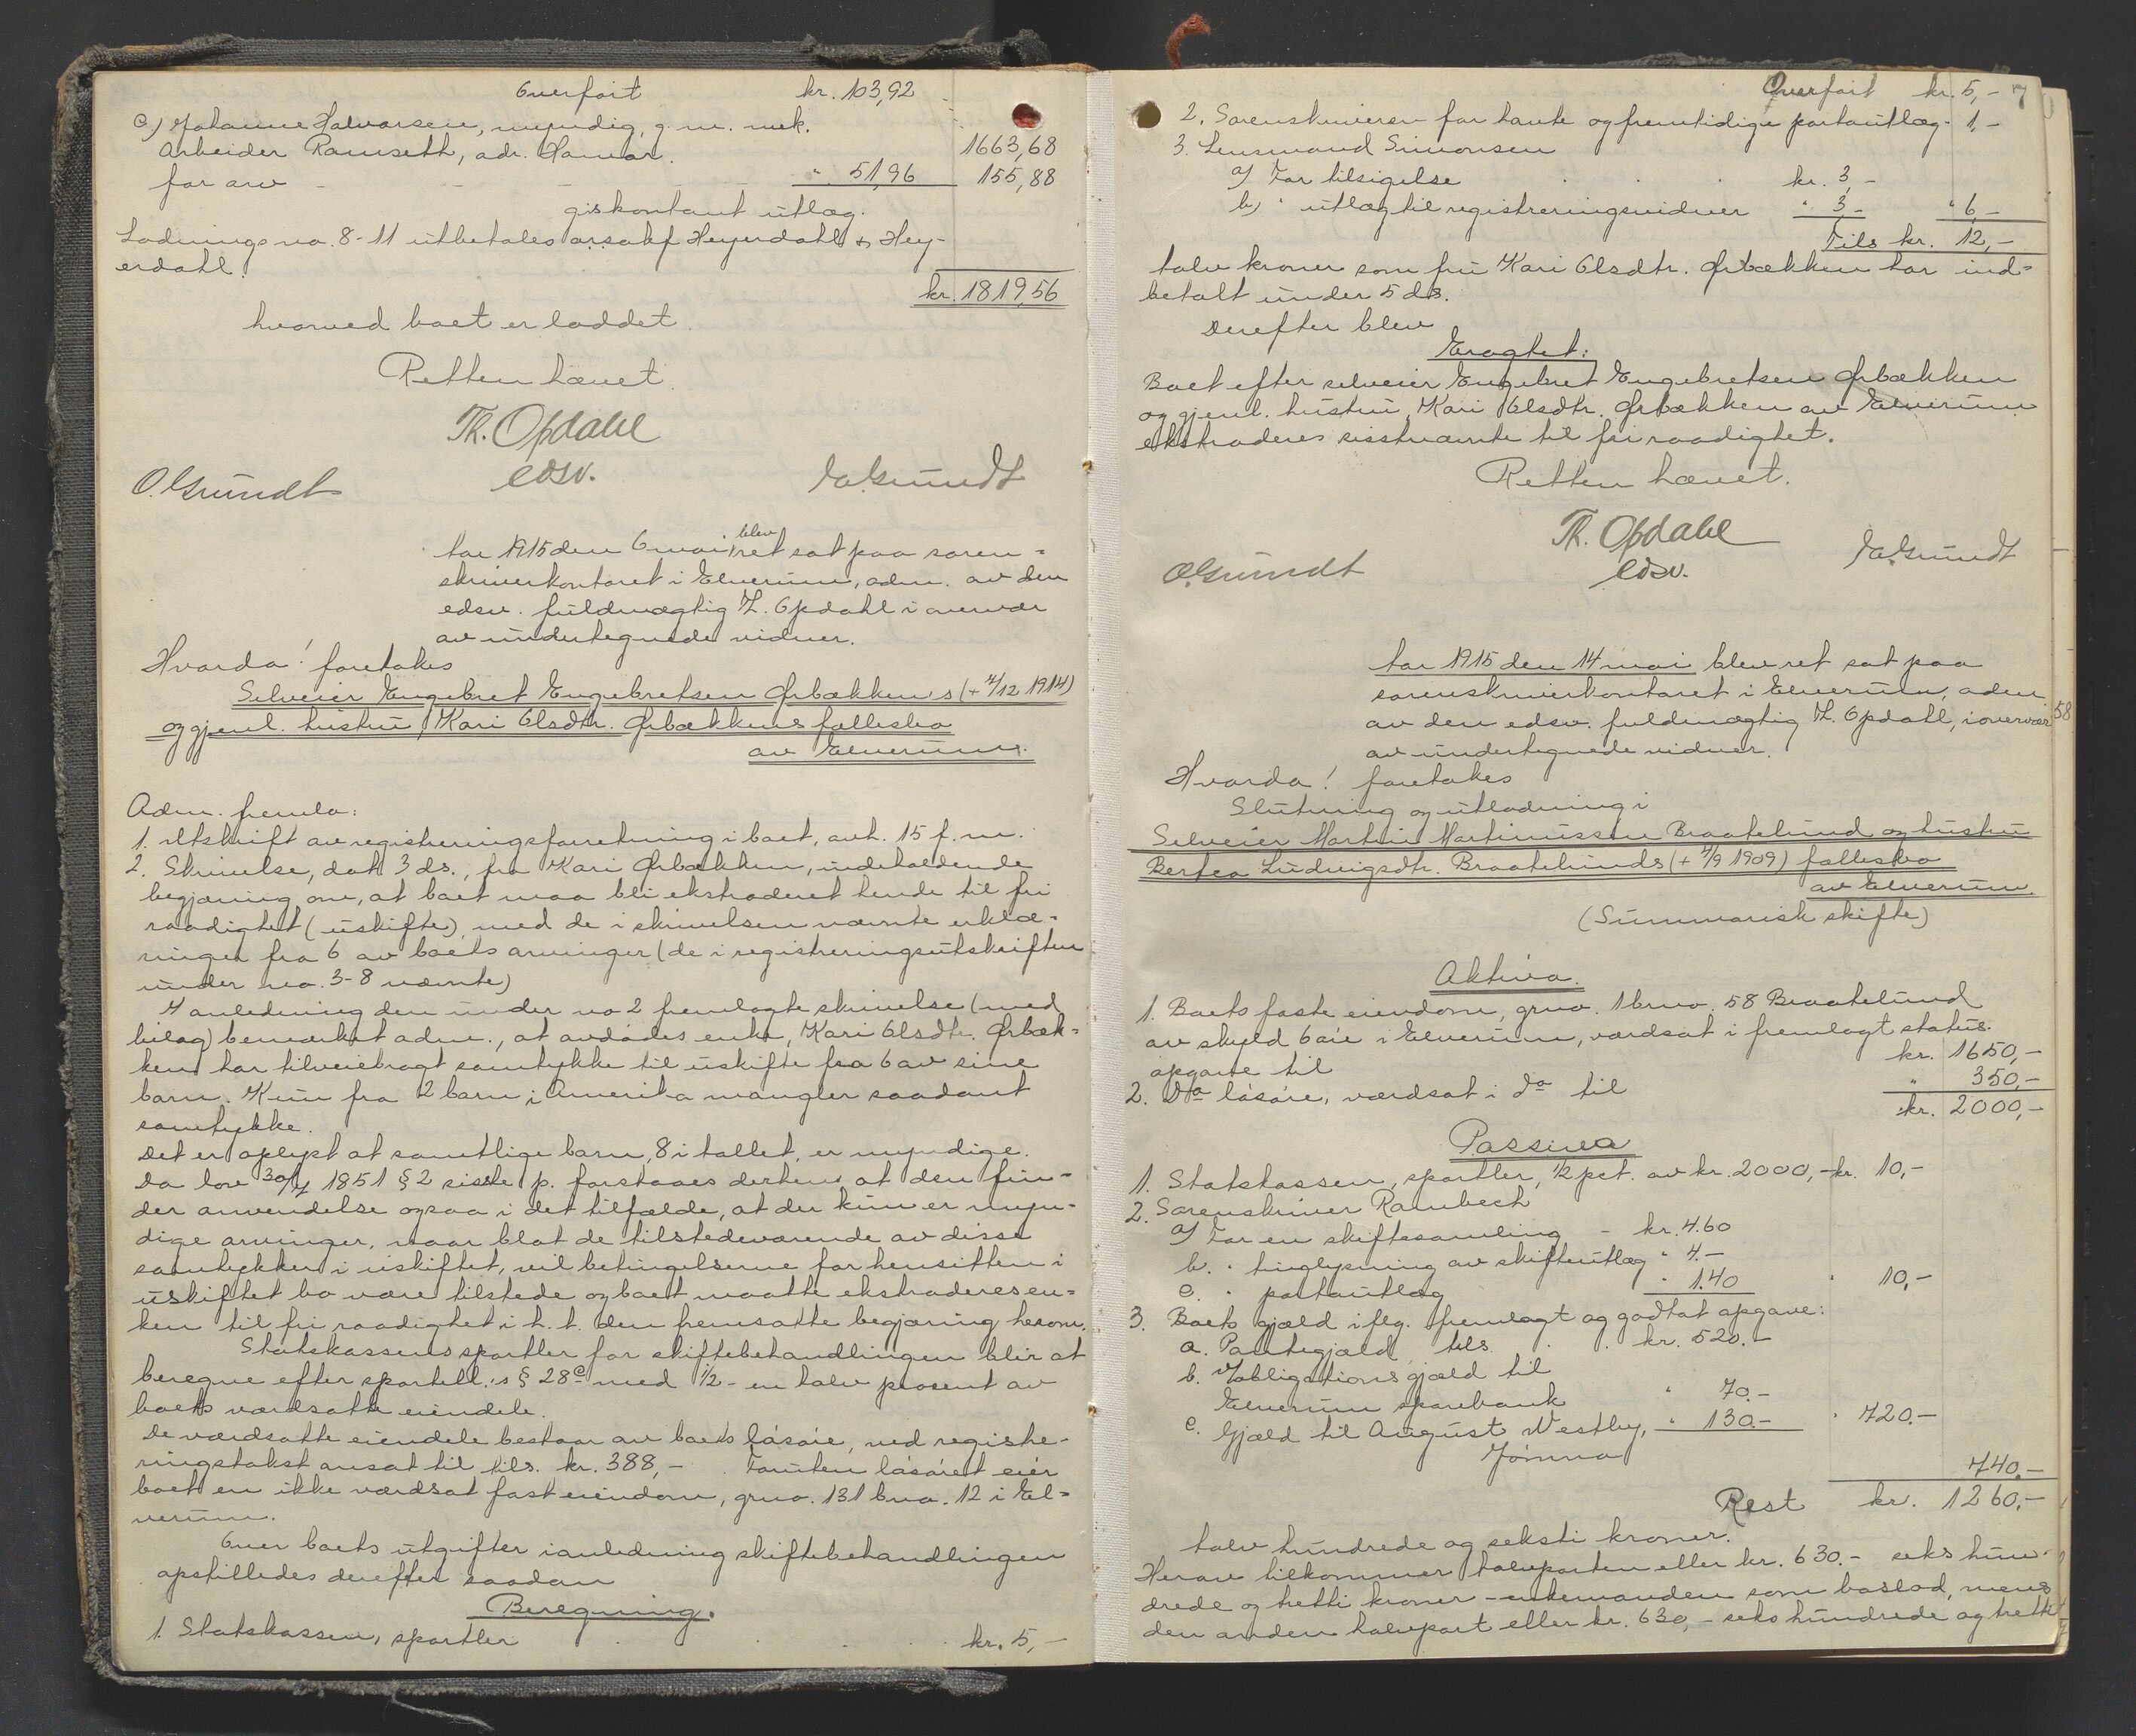 Overført kr. 103,92
c.) Johanne Halvorsen, myndig, g. m. mek.
arbeider Ramseth, adr. Hamar. 1663,68
for arv - - - - " 51,96 155,88
gjskontant utlæg.
Lodnings no. 8-11 utbetales o.r.sakf. Heyerdahl & Hey-
erdahl.
kr. 1819,56
hvorved boet er loddet.
Retten hævet.
Th. Opdahl
edsv.
O. Grundt
Aar 1915 den 6 mai blev ret sat paa soren-
skriverkontoret i Elverum, adm. av den
edsv. fuldmægtig Th. Opdahl i overvær
av undertegnede vidner.
Hvorda! foretokes
Selveier Engebret Engebretsen Ørbækkens (+ 4/12 1914)
og gjenl. hustru Kari Olsdtr. Ørbækkens fællesbo
av Elverum.
Adm. fremla:
1. Utskrift av registreringsforretning i boet, ank. 15 f. m.
2. Skrivelse, dat. 3 ds., fra Kari Ørbækken, indeholdende
begjæring om, at boet maa bli ekstraderet hende til fri
raadighet (uskifte), med de i skrivelsen nævnte erklæ-
ringer fra 6 av boets arvinger (de i registreringsutskriften
under no. 3-8 nævnte)
I anledning den under no 2 fremlagte skrivelse (med
bilag) bemerket adm., at avdødes enke, Kari Olsdtr. Ørbæk-
ken har tilveiebragt samtykke til uskifte fra 6 av sine
barn. Kun fra 2 barn i Amerika mangler saadant
samtykke.
Det er oplyst at samtlige barn, 8 i tallet, er myndige.
Da lov 30/7 1851 § 2 siste p. forstaaes derhen, at den fin-
der anvendelse ogsaa i det tilfælde, at der kun er myn-
dige arvinger, naar blot de tilstedeværende av disse
samtykker i uskiftet, vil betingelserne for hensitten i
uskiftet bo være tilstede og boet maatte ekstraderes en-
ken til fri raadighet i h. t. den fremsatte begjæring herom.
Statskassens sportler for skiftebehandlingen blir at
beregne efter sportell.'s § 28 c med ½ - en halv procent av
boets værdsatte eiendele.
De værdsatte eiendele bestaar av boets løsøre, ved registre-
ringstakst ansat til tils. kr. 388,- . Foruten løsøret eier
boet en ikke værdsat fast eiendom, grno. 131 bno. 12 i El-
verum.
Over boets utgifter i anledning skiftebehandlingen
opstilledes derefter saadan
Beregning.
1. Statskassen, sportler . . . . kr. 5,-
Overført kr. 5,- 7
2. Sorenskriveren for havte og fremtidige portoutlæg - 1,-
3. Lensmand Simonsen
a) For tilsigelse . . . kr. 3,-
b) " utlæg til registreringsvidner " 3,- " 6,-
Tils kr. 12,-
tolv kroner som fru Kari Olsdtr. Ørbækken har ind-
betalt under 5 ds.
Derefter blev
Eragtet:
Boet efter selveier Engebret Engebretsen Ørbækken
og gjenl. hustru Kari Olsdtr. Ørbækken av Elverum
ekstraderes sisstnævnte til fri raadighet.
Retten hævet.
Th. Opdahl
edsv.
O. Grundt
Aar 1915 den 14 mai blev ret sat paa
sorenskriverkontoret i Elverum, adm.
av den edsv. fuldmægtig Th. Opdahl, i overvær 58
av undertegnede vidner.
Hvorda! foretokes
Slutning og utlodning i
Selveier Martin Martinussen Braatelund og hustru
Bertea Ludvigsdtr. Braatelunds (+ 4/9 1909) fællesbo
av Elverum.
(Summarisk skifte)
Aktiva.
1. Boets faste eiendom, grno. 1 brno. 58 Braatelund
av skyld 6 øre i Elverum, værdsat i fremlagt status-
opgave til kr. 1650,-
2. Do løsøre, værdsat i do til " 350,-
kr. 2000,-
Passiva
1. Statskassen, sportler, ½ pct. av kr. 2000,- kr. 10,-
2. Sorenskriver Rambech
a) For en skiftesamling - kr. 4.60
b. " tinglysning av skifteutlæg " 4.-
c. " portoutlæg " 1.40 " 10,-
3. Boets gjæld i flg. fremlagt og godtat opgave:
a. Pantegjæld, tils. . . kr. 520.-
b. Obligationsgjæld til
Elverum sparebank " 70.-
c. Gjæld til August Westby, " 130.- " 720.-
Jømna
740,-
Rest kr. 1260,-
tolv hundrede og seksti kroner.
Herav tilkommer halvparten eller kr. 630.- seks hun-
drede og tretti kroner - enkemanden som boslod, mens
den anden halvpart eller kr. 630,- seks hundrede og tretti